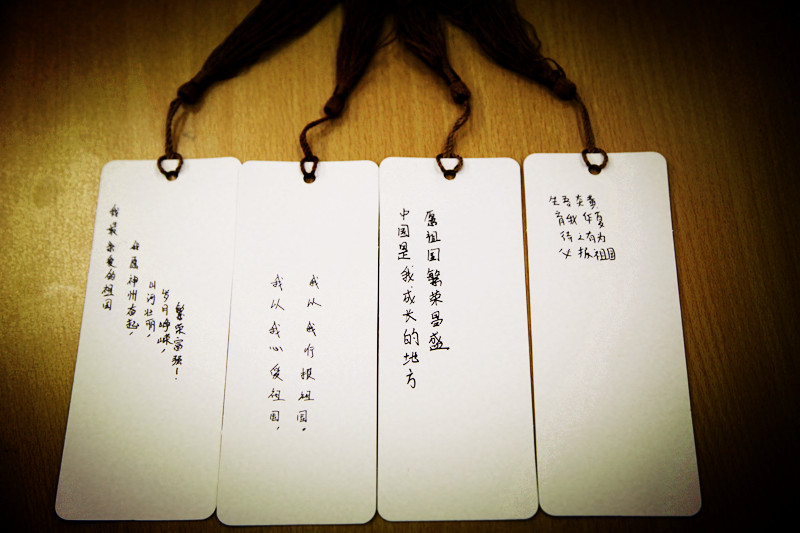 我最亲爱的祖国
愿神州奋起，
山河壮丽，
岁月峥嵘，
繁荣富强！
我以我心爱祖国，
我以我行报祖国。
中国是我成长的地方
愿祖国繁荣昌盛
生吾炎黄
育我华夏
待之有为
必报祖国